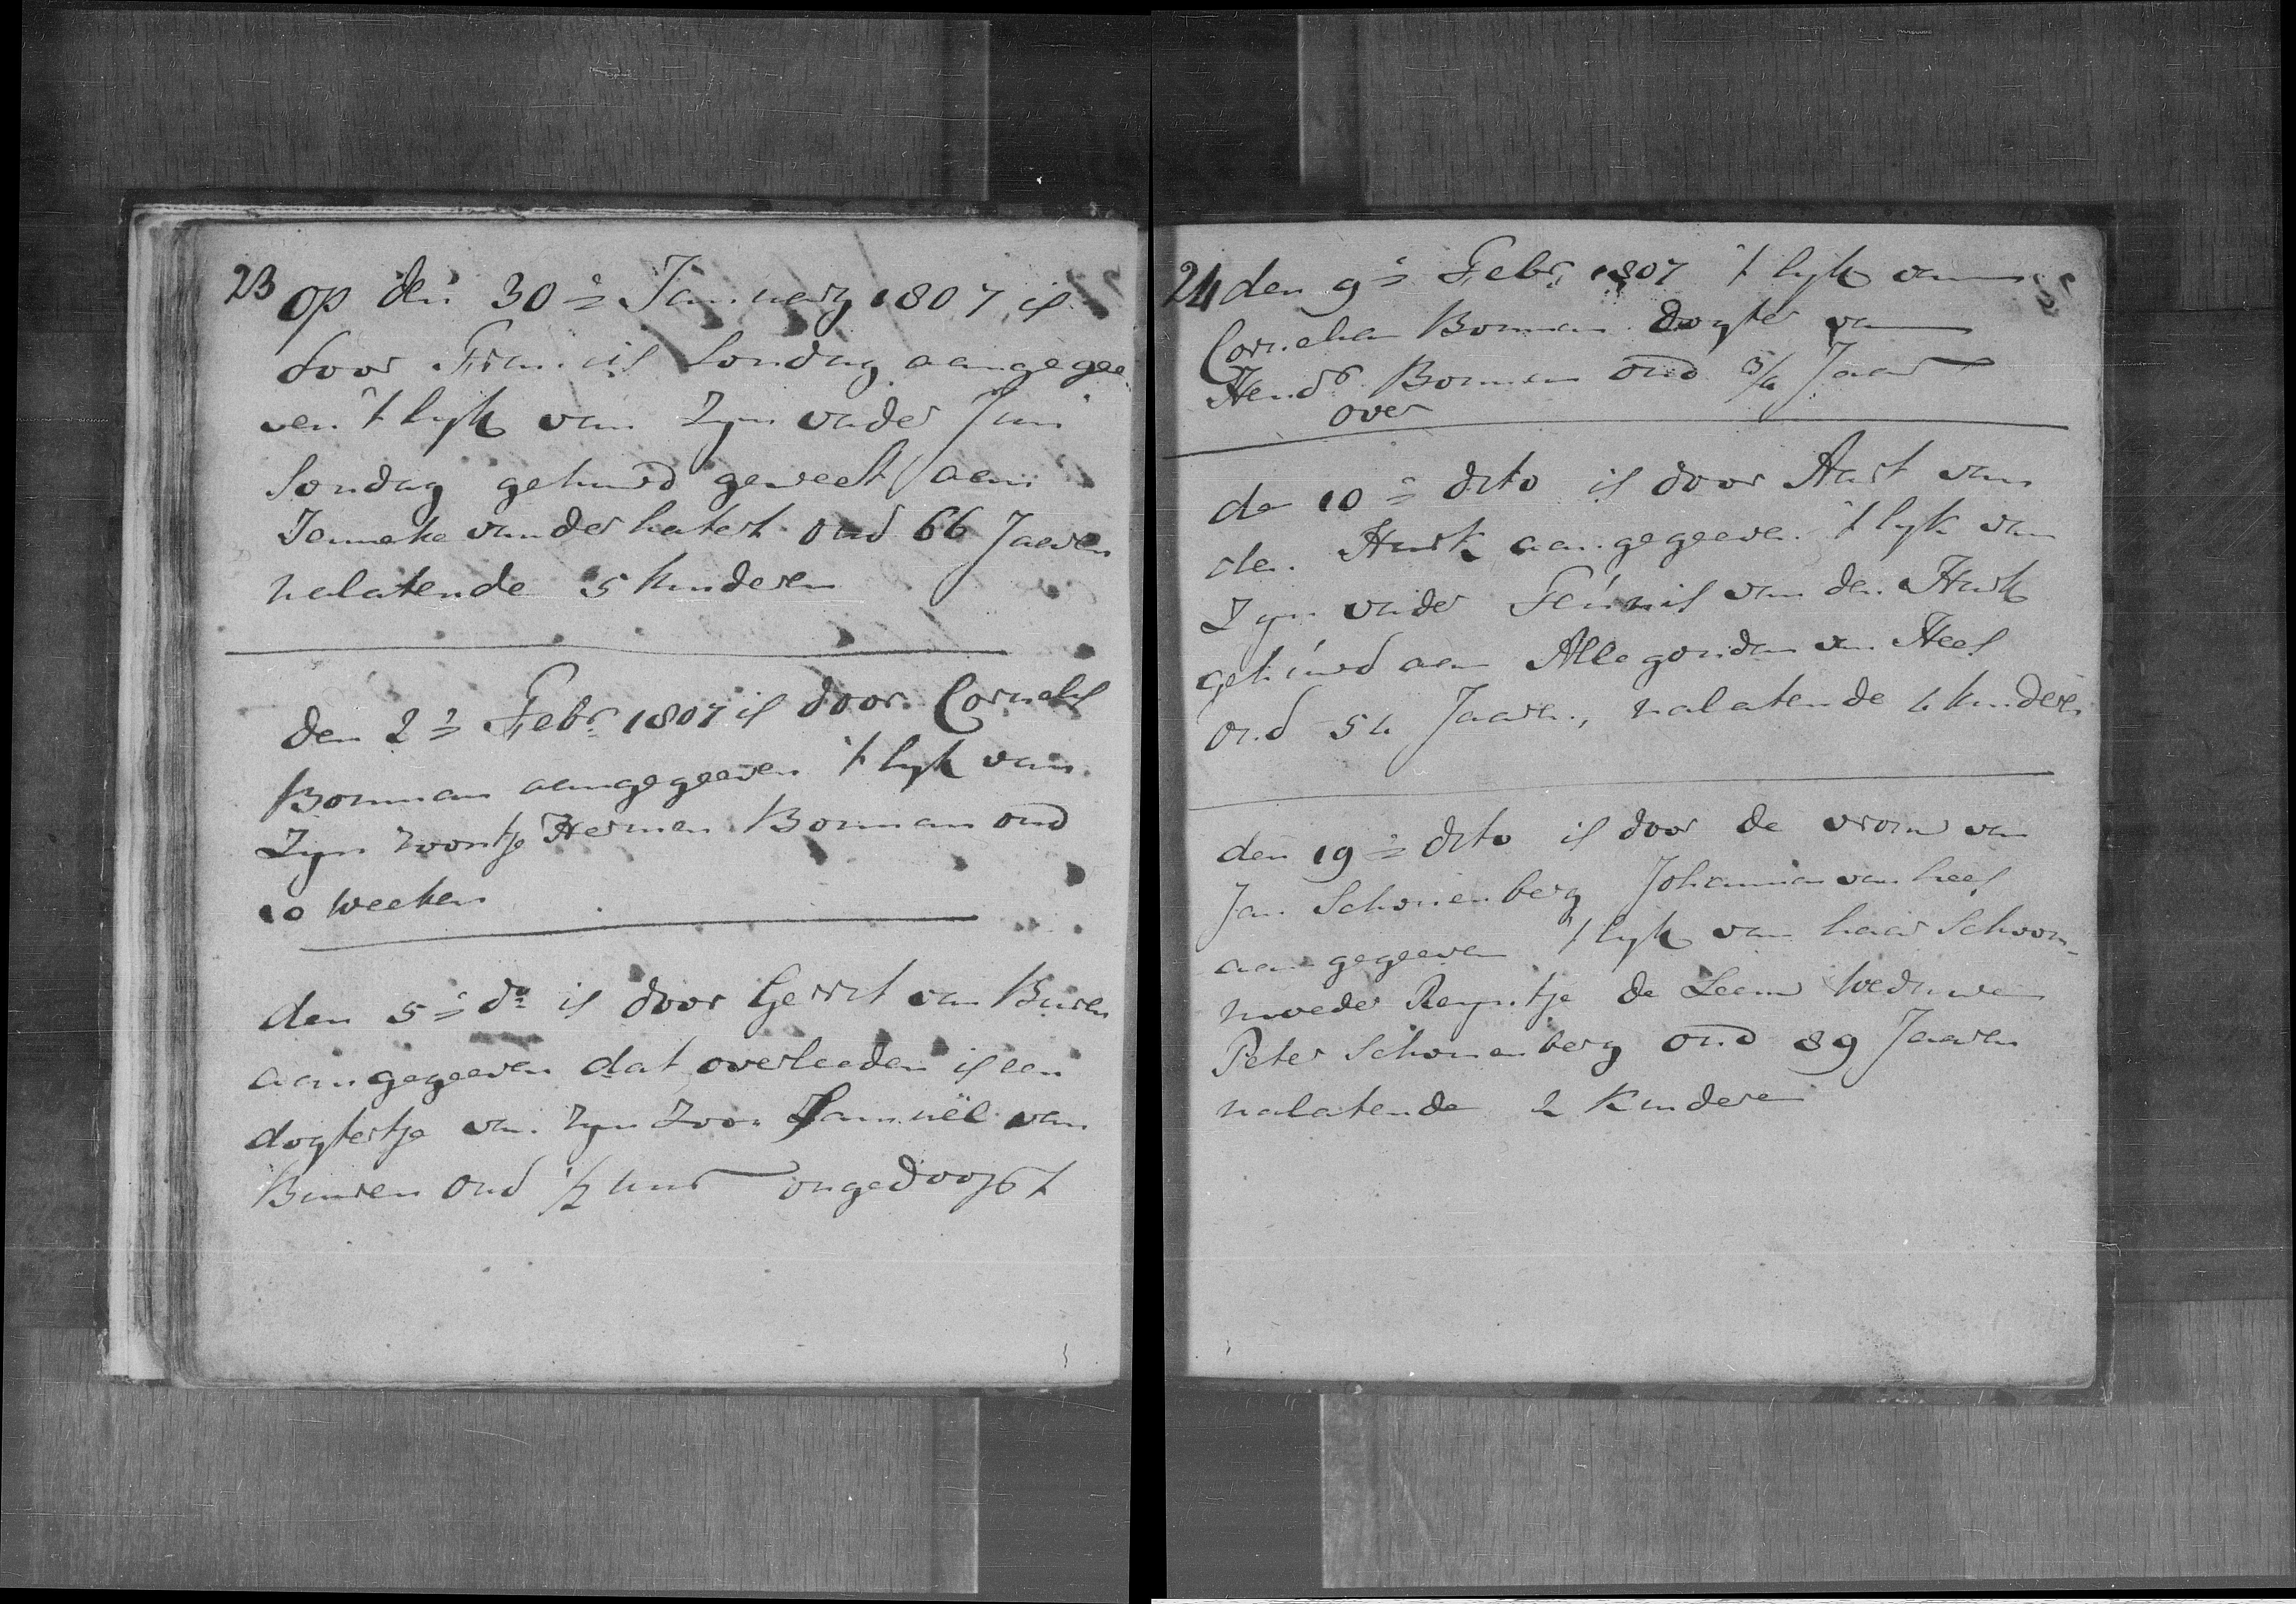 23 op den 30e January 1807 is
door Francis Sondag aangegee-
ven 't lyk van Zyn vader Jan
Sondag gehuwd geweest aan
Jenneke van der hatert oud 66 Jaaren
nalatende 5 kinderen
den 2e Febr 1807 is door Cornelis
Bouman aangegeeven 't lyk van
Zyn zoontje Hermen Bouman oud
10 weeken
den 5e do is door Gerrit van Buren
aangegeeven dat overleeden is een
dogtertje van Zyn Zoon Samuël van
Buuren oud ½ uur ongedoopt
24 den 9e Febr 1807 't lyk van
Cornelia Bouman dogter van
Hendr Bouman oud 3/4 Jaar
over
den 10e dito is door Aart van
den Hurk aangegeeven 't lyk van
Zyn vader Teunis van den Hurk
gehuwd aan Allegonda van Hees
oud 54 Jaaren, nalatende 4 kinderen
den 19e dito is door de vrouw van
Jan Schonenberg Johanna van hees
aangegeeven 't lyk van haar Schoon-
moeder Reyntje de Leeuw Weduwe
Peter Schonenberg oud 89 Jaaren
nalatende 2 Kinderen